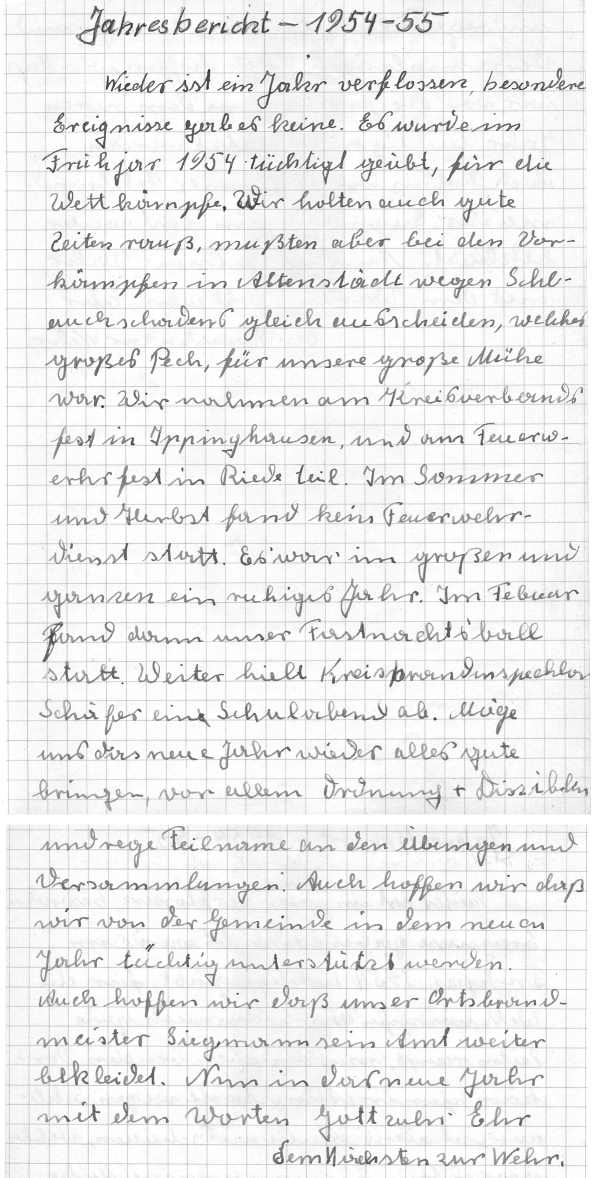 Jahresbericht – 1954-55
Wieder ist ein Jahr verflossen, besondere
Ereignisse gab es keine. Es wurde im
Frühjar 1954 tüchtigt geübt, für die
Wettkämpfe. Wir holten auch gute
Zeiten rauß, mußten aber bei den Vor-
kämpfen in Altenstädt wegen Schl-
auchschadens gleich ausscheiden, welches
großes Pech, für unsere große Mühe
war. Wir nahmen am Kreisverbands
fest in Ippinghausen, und am Feuerw-
erhrfest in Riede teil. Im Sommer
und Herbst fand kein Feuerwehr-
dienst statt. Es war im großen und
ganzen ein ruhiges Jahr. Im Febuar
fand dann unser Fastnachtsball
statt. Weiter hielt Kreisbrandinspektor
Schäfer eine Schulabend ab. Möge
uns das neue Jahr wieder alles gute
bringen, vor allem Ordnung + Diszibelin
und rege Teilname an den Übungen und
Versammlungen. Auch hoffen wir daß
wir von der Gemeinde in dem neuen
Jahr tüchtig unterstützt werden.
Auch hoffen wir daß unser Ortsbrand-
meister Siegmann sein Amt weiter
bekleidet. Nun in das neue Jahr
mit dem Worten Gott zuhr Ehr
dem Nächsten zur Wehr.